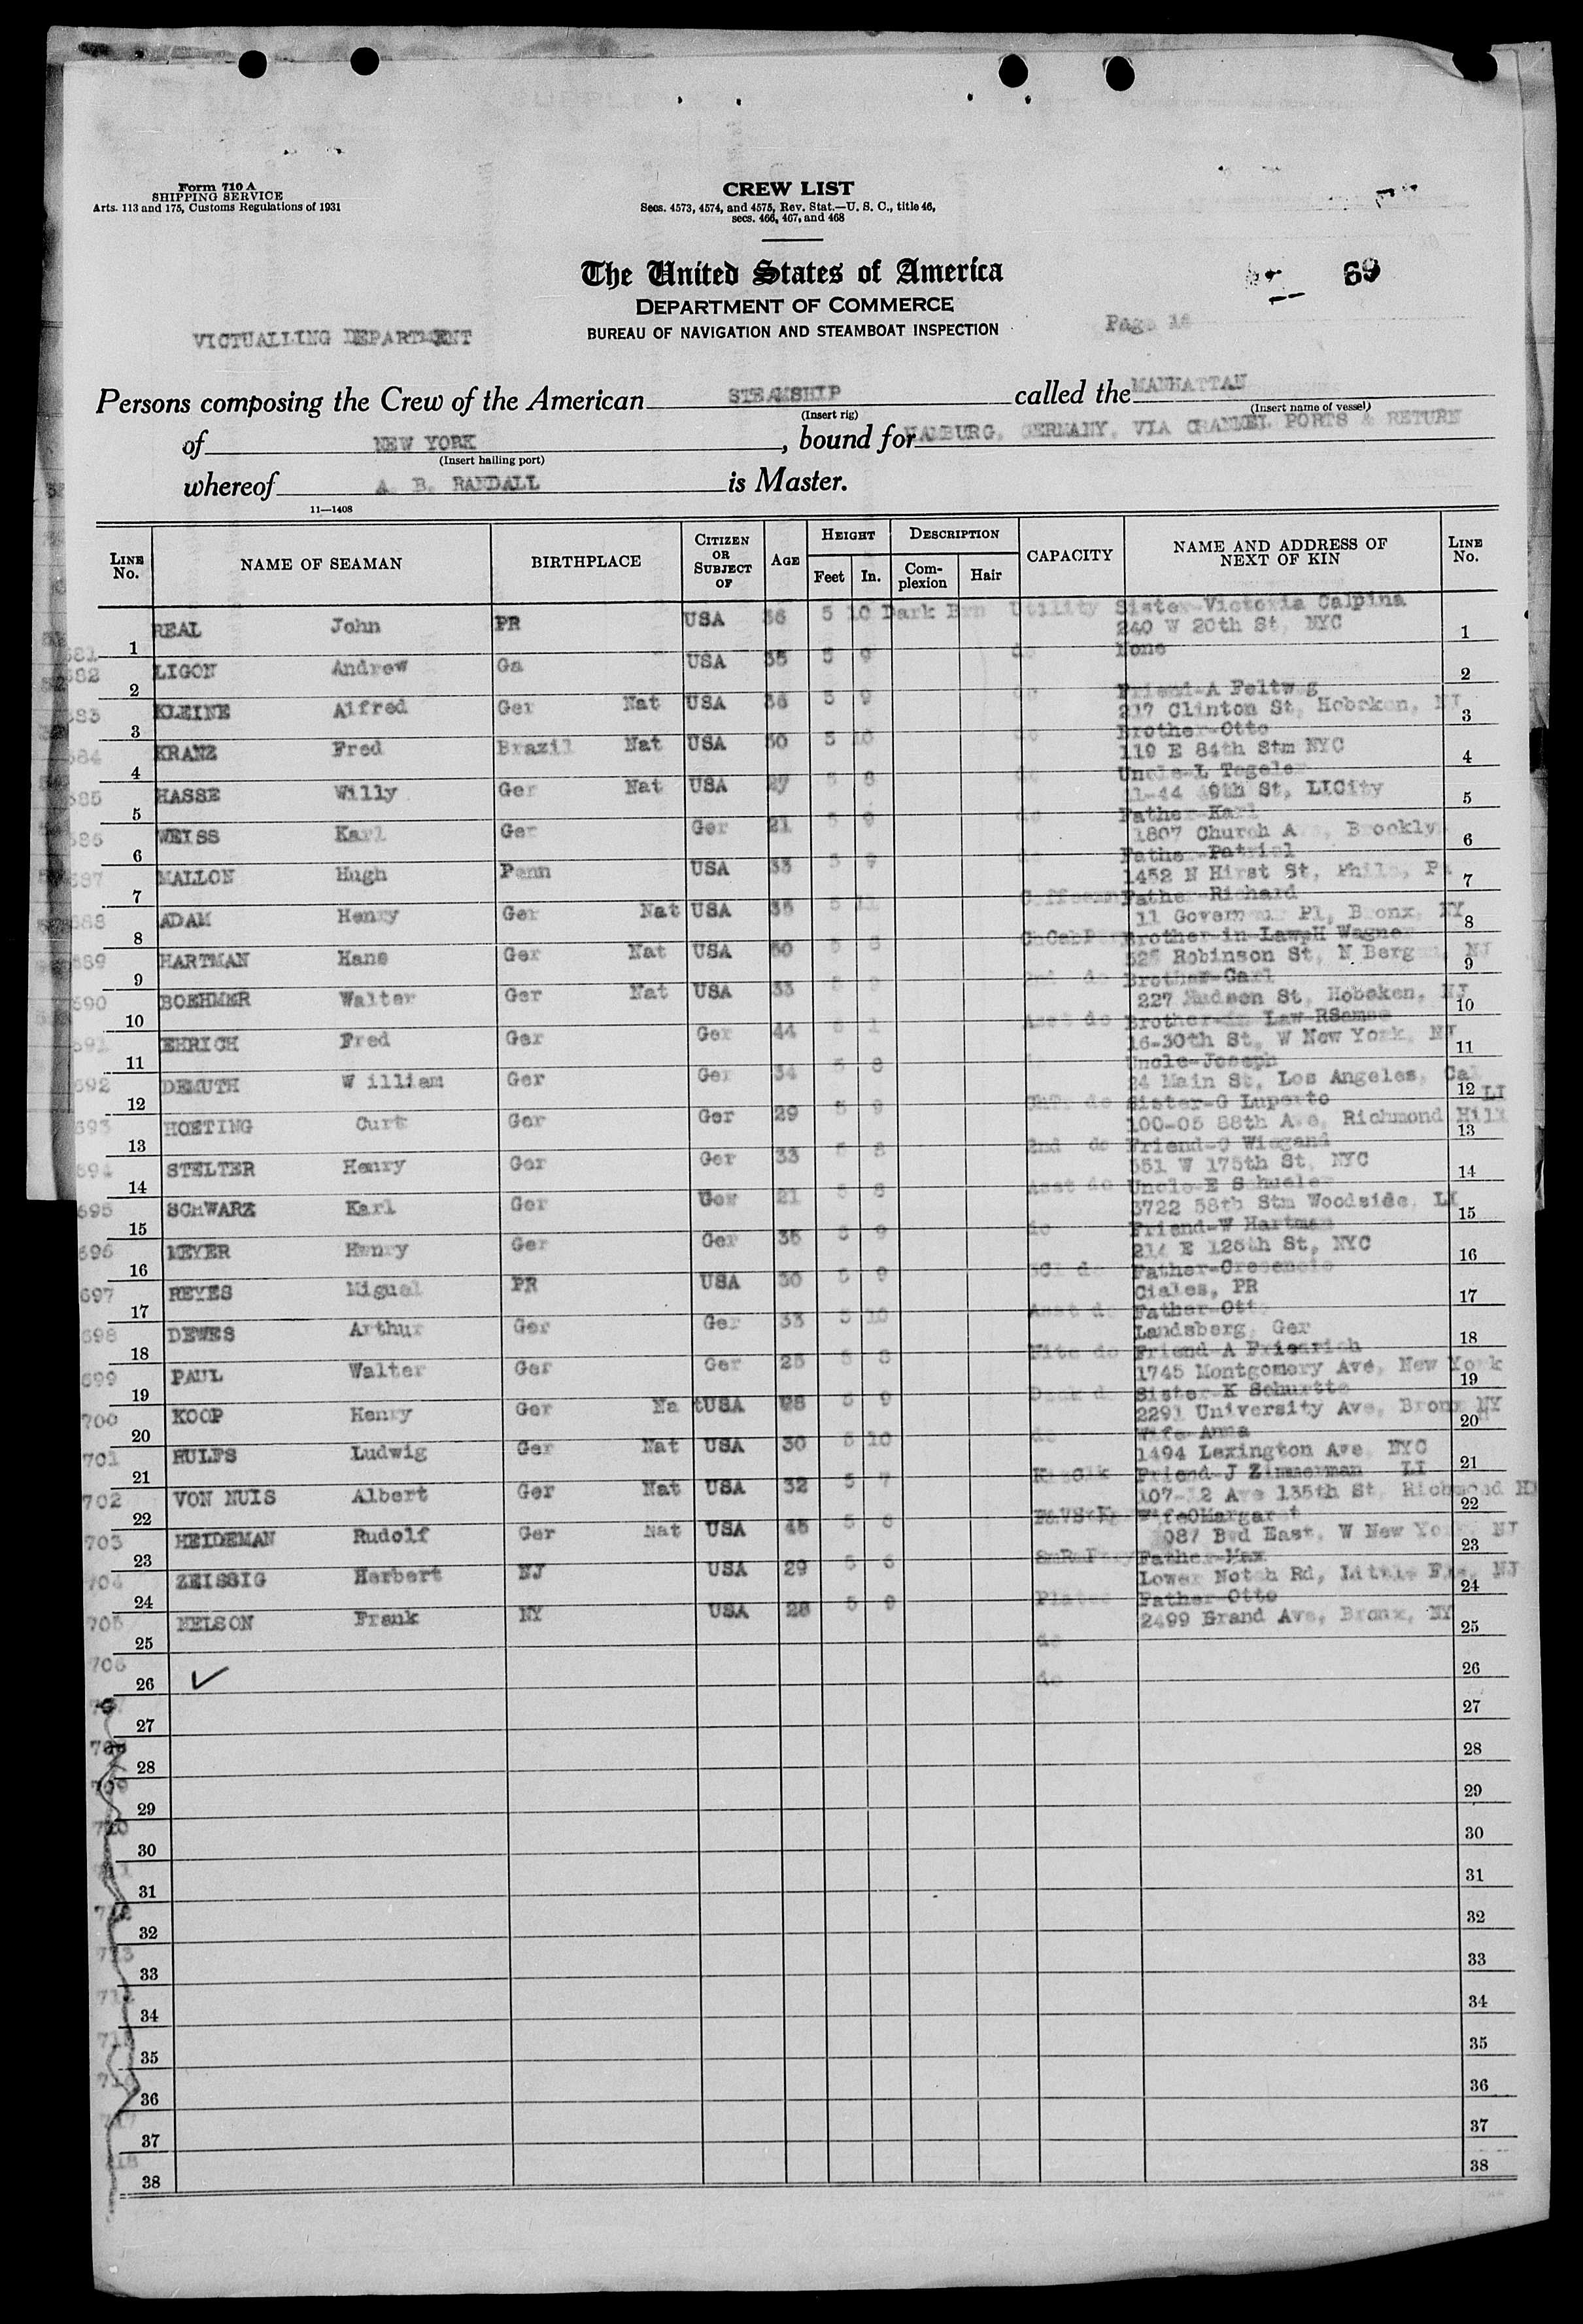 Form 710 A
SHIPPING SERVICE
Arts. 113 and 175, Customs Regulations of 1931
CREW LIST
Secs. 4573, 4574, and 4575, Rev. Stat.—U. S. C., title 46,
secs. 466, 467, and 468
The United States of America
DEPARTMENT OF COMMERCE
BUREAU OF NAVIGATION AND STEAMBOAT INSPECTION
69
VICTUALLING DEPARTMENT
Page 18
Persons composing the Crew of the American STEAMSHIP called the MANHATTAN
(Insert rig) (Insert name of vessel)
of NEW YORK, bound for HAMBURG, GERMANY, VIA CHANNEL PORTS & RETURN
(Insert hailing port)
whereof A. B. RANDALL is Master.
11—1408
LINE No. NAME OF SEAMAN BIRTHPLACE CITIZEN OR SUBJECT OF AGE HEIGHT Feet In. DESCRIPTION Complexion Hair CAPACITY NAME AND ADDRESS OF NEXT OF KIN LINE No.
681 1 REAL John PR USA 36 5 10 Dark Brn Utility Sister-Victoria Calpina 1
240 W 20th St, NYC
682 2 LIGON Andrew Ga USA 35 5 9 do None 2
683 3 KLEINE Alfred Ger Nat USA 36 5 9 do Friend-A 3
217 Clinton St, Hoboken, NJ
684 4 KRANZ Fred Brazil Nat USA 30 5 10 do Brother-Otto 4
119 E 84th Stm NYC
685 5 HASSE Willy Ger Nat USA 27 5 8 do Uncle-L Tegeler 5
49th St, LICity
686 6 WEISS Karl Ger Ger 21 5 9 do Father-Karl 6
1807 Church Brooklyn
687 7 MALLON Hugh Penn USA 33 5 9 do 7
1452 N Hirst St, Phila, Pa
688 8 ADAM Henry Ger Nat USA 35 5 11 Father-Richard 8
11 Pl, Bronx, NY
689 9 HARTMAN Hans Ger Nat USA 50 5 8 Brother-in-Law-H Wagner 9
Robinson St, N Bergen, NJ
690 10 BOEHMER Walter Ger Nat USA 33 5 9 2nd do Brother-Carl 10
227 Hudson St, Hoboken, NJ
691 11 EHRICH Fred Ger Ger 44 1 Asst do Brother-in-Law 11
16-30th St, W New York, NJ
692 12 DEMUTH W illiam Ger Ger 34 5 8 do Uncle-Joseph 12
24 Main St, Los Angeles, Cal
693 13 HOETING Curt Ger Ger 29 5 9 do Sister-G Luperto LI 13
100-05 88th Ave, Richmond Hill
694 14 STELTER Henry Ger Ger 33 5 8 2nd do Friend-O Wiegand 14
551 W 175th St, NYC
695 15 SCHWARZ Karl Ger Ger 21 5 8 Asst do Uncle-E Schueler 15
3722 58th Stm Woodside, LI
696 16 MEYER Hwnry Ger Ger 35 5 9 do Friend-W Hartman 16
214 E 125th St, NYC
697 17 REYES Migual PR USA 30 5 9 do Father-Cresencio 17
Ciales, PR
698 18 DEWES Arthur Ger Ger 33 5 10 Asst do Father-Otto 18
Landsberg, Ger
699 19 PAUL Walter Ger Ger 25 5 8 Nite do Friend-A 19
1745 Montgomery Ave, New York
700 20 KOOP Henry Ger Na tUSA 28 5 9 Deck do Sister-K Schurtte 20
2291 University Ave, Bronx NY
701 21 HULFS Ludwig Ger Nat USA 30 5 10 do Wife-Anna 21
1494 Lexington Ave, NYC
702 22 VON NUIS Albert Ger Nat USA 32 5 7 Friend-J Zimmerman LI 22
107-12 Ave 135th St, Richmond Hi
703 23 HEIDEMAN Rudolf Ger Nat USA 45 5 8 WifeOMargaret 23
Bvd East, W New York, NJ
704 24 ZEISSIG Herbert NJ USA 29 5 6 Father-Max 24
Lower Notch Rd, Little NJ
705 25 NELSON Frank NY USA 28 5 9 Plates Father-Otto 25
2499 Grand Ave, Bronx, NY
do
706 26 do 26
27 27
708 28 28
709 29 29
710 30 30
711 31 31
712 32 32
713 33 33
714 34 34
715 35 35
716 36 36
717 37 37
718 38 38